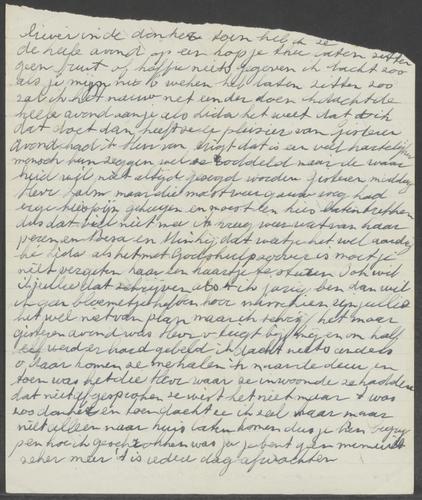 liever in de donker toen heb ik ze
de hele avond op een kopje thee laten zitten
geen fruit of koffie niets gegeven ik dacht zoo
als je mijn wil laten zitten zoo
zal ik het nauw net eender doen
hele avond van je als Lida het weet dat doet
dat doet dan heeft ze plezier van gisteren
avond had ik Heer van Vugt dat is een veel hartelijker
mensch kan zeggen wel maar de waar
heid wijl niet altijd gezegd worden gisteren middag
Heer Salm maar die moest weer gauw weg had
erge kiespijn gekregen en moest een kies laten trekken
dus dat viel niet mee ik kreeg weer wat van haar
peren en dat weet je het wel aardig
hé Lida als het met Gods hulp zover is moet je
niet vergeten haar een kaartje te sturen Ik wil
jullie dat schrijven als ik jarig ben dan wil
ik gaan bloemetje koopen voor misschien zijn jullie
het wel niet van plan maar ik het maar
gisteren avond was Heer v Vugt bij mij en om half
werd er hard gebeld ik dacht niets anders
o daar komen ze me halen ik naar de deur en
toen was het die Heer waar ze inwoonde ze hadden
dat niet afgesproken ze wist het niet maar t was
zoo donker en toen dacht ze ik zal haar maar
niet alleen naar huis laten komen dus je kan begrij
pen hoe ik geschrokken was ja je bent geen minuut
zeker meer t is iedere dag afwachten